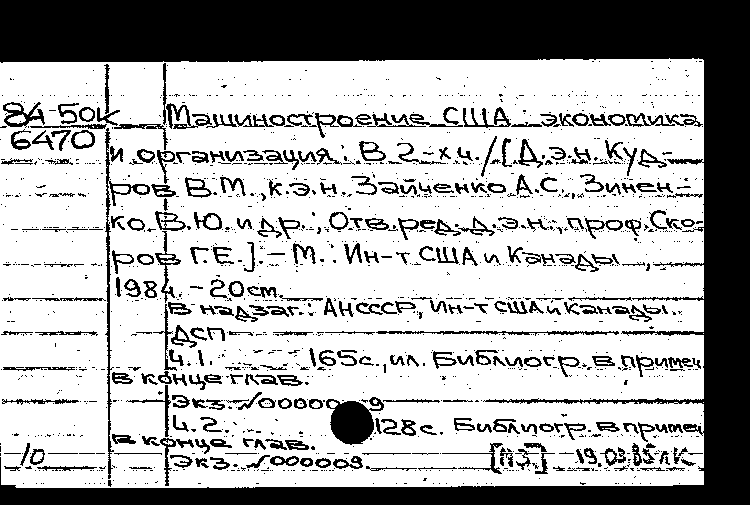 84-50к Машиностроение США: экономика
6470 и организация: В 2-х ч. / [Д.э.н. Куд-
ров В.М., к.э.н. Зайченко А.С., Зинен-
ко В.Ю. и др.; Отв. ред. д.э.н., проф. Ско-
ров Г.Е.]. - М.: Ин-т США и Канады,
1984. - 20 см.
В надзаг.: АН СССР, Ин-т США и Канады.
ДСП
Ч.1. 165с., ил. Библиогр. в примеч.
в конце глав.
Экз. √00000 9
Ч.2. 128с. Библиогр. в примеч
в конце глав.
Экз. √000009.
10 [ПЗ] 19.03.85 лК